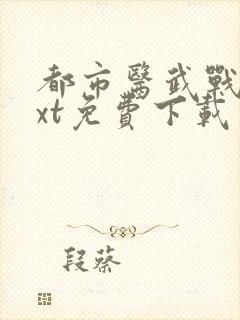 都市醫武戰
xt免費下載
段蔡